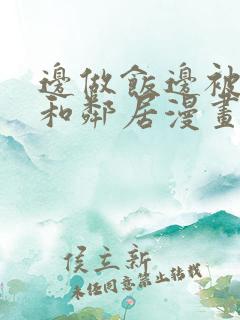 邊做飯邊被
和鄰居漫畫
侯立新
未经同意禁止转载